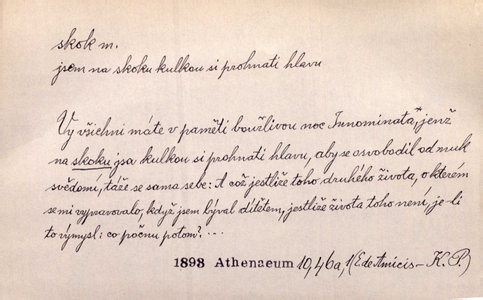 skok m.
jsem na skoku kulkou si prohnati hlavu
Vy všichni máte v paměti bouřlivou noc "Innominata", jenž
na skoku jsa kulkou si prohnati hlavu, aby se osvobodil od muk
svědomí, táže se sama sebe: A což jestliže toho druhého života, o kterém
se mi vypravovalo, když jsem býval dítětem, jestliže života toho není, je-li
to výmysl: co počnu potom? ...
1893 Athenaeum 10,46a,1(E de Amicis – K. P.)